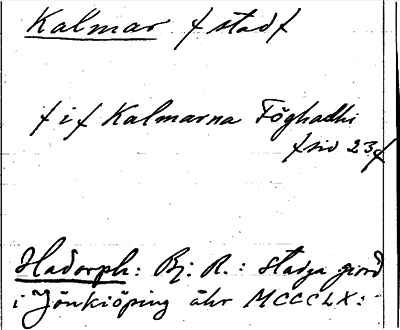 Kalmar /stad/
/i/ Kalmarna Föghadhi
/sid 23/
Hadorph: Bj. R.: Stadga giord
i Jönkiöping åhr MCCCLX: